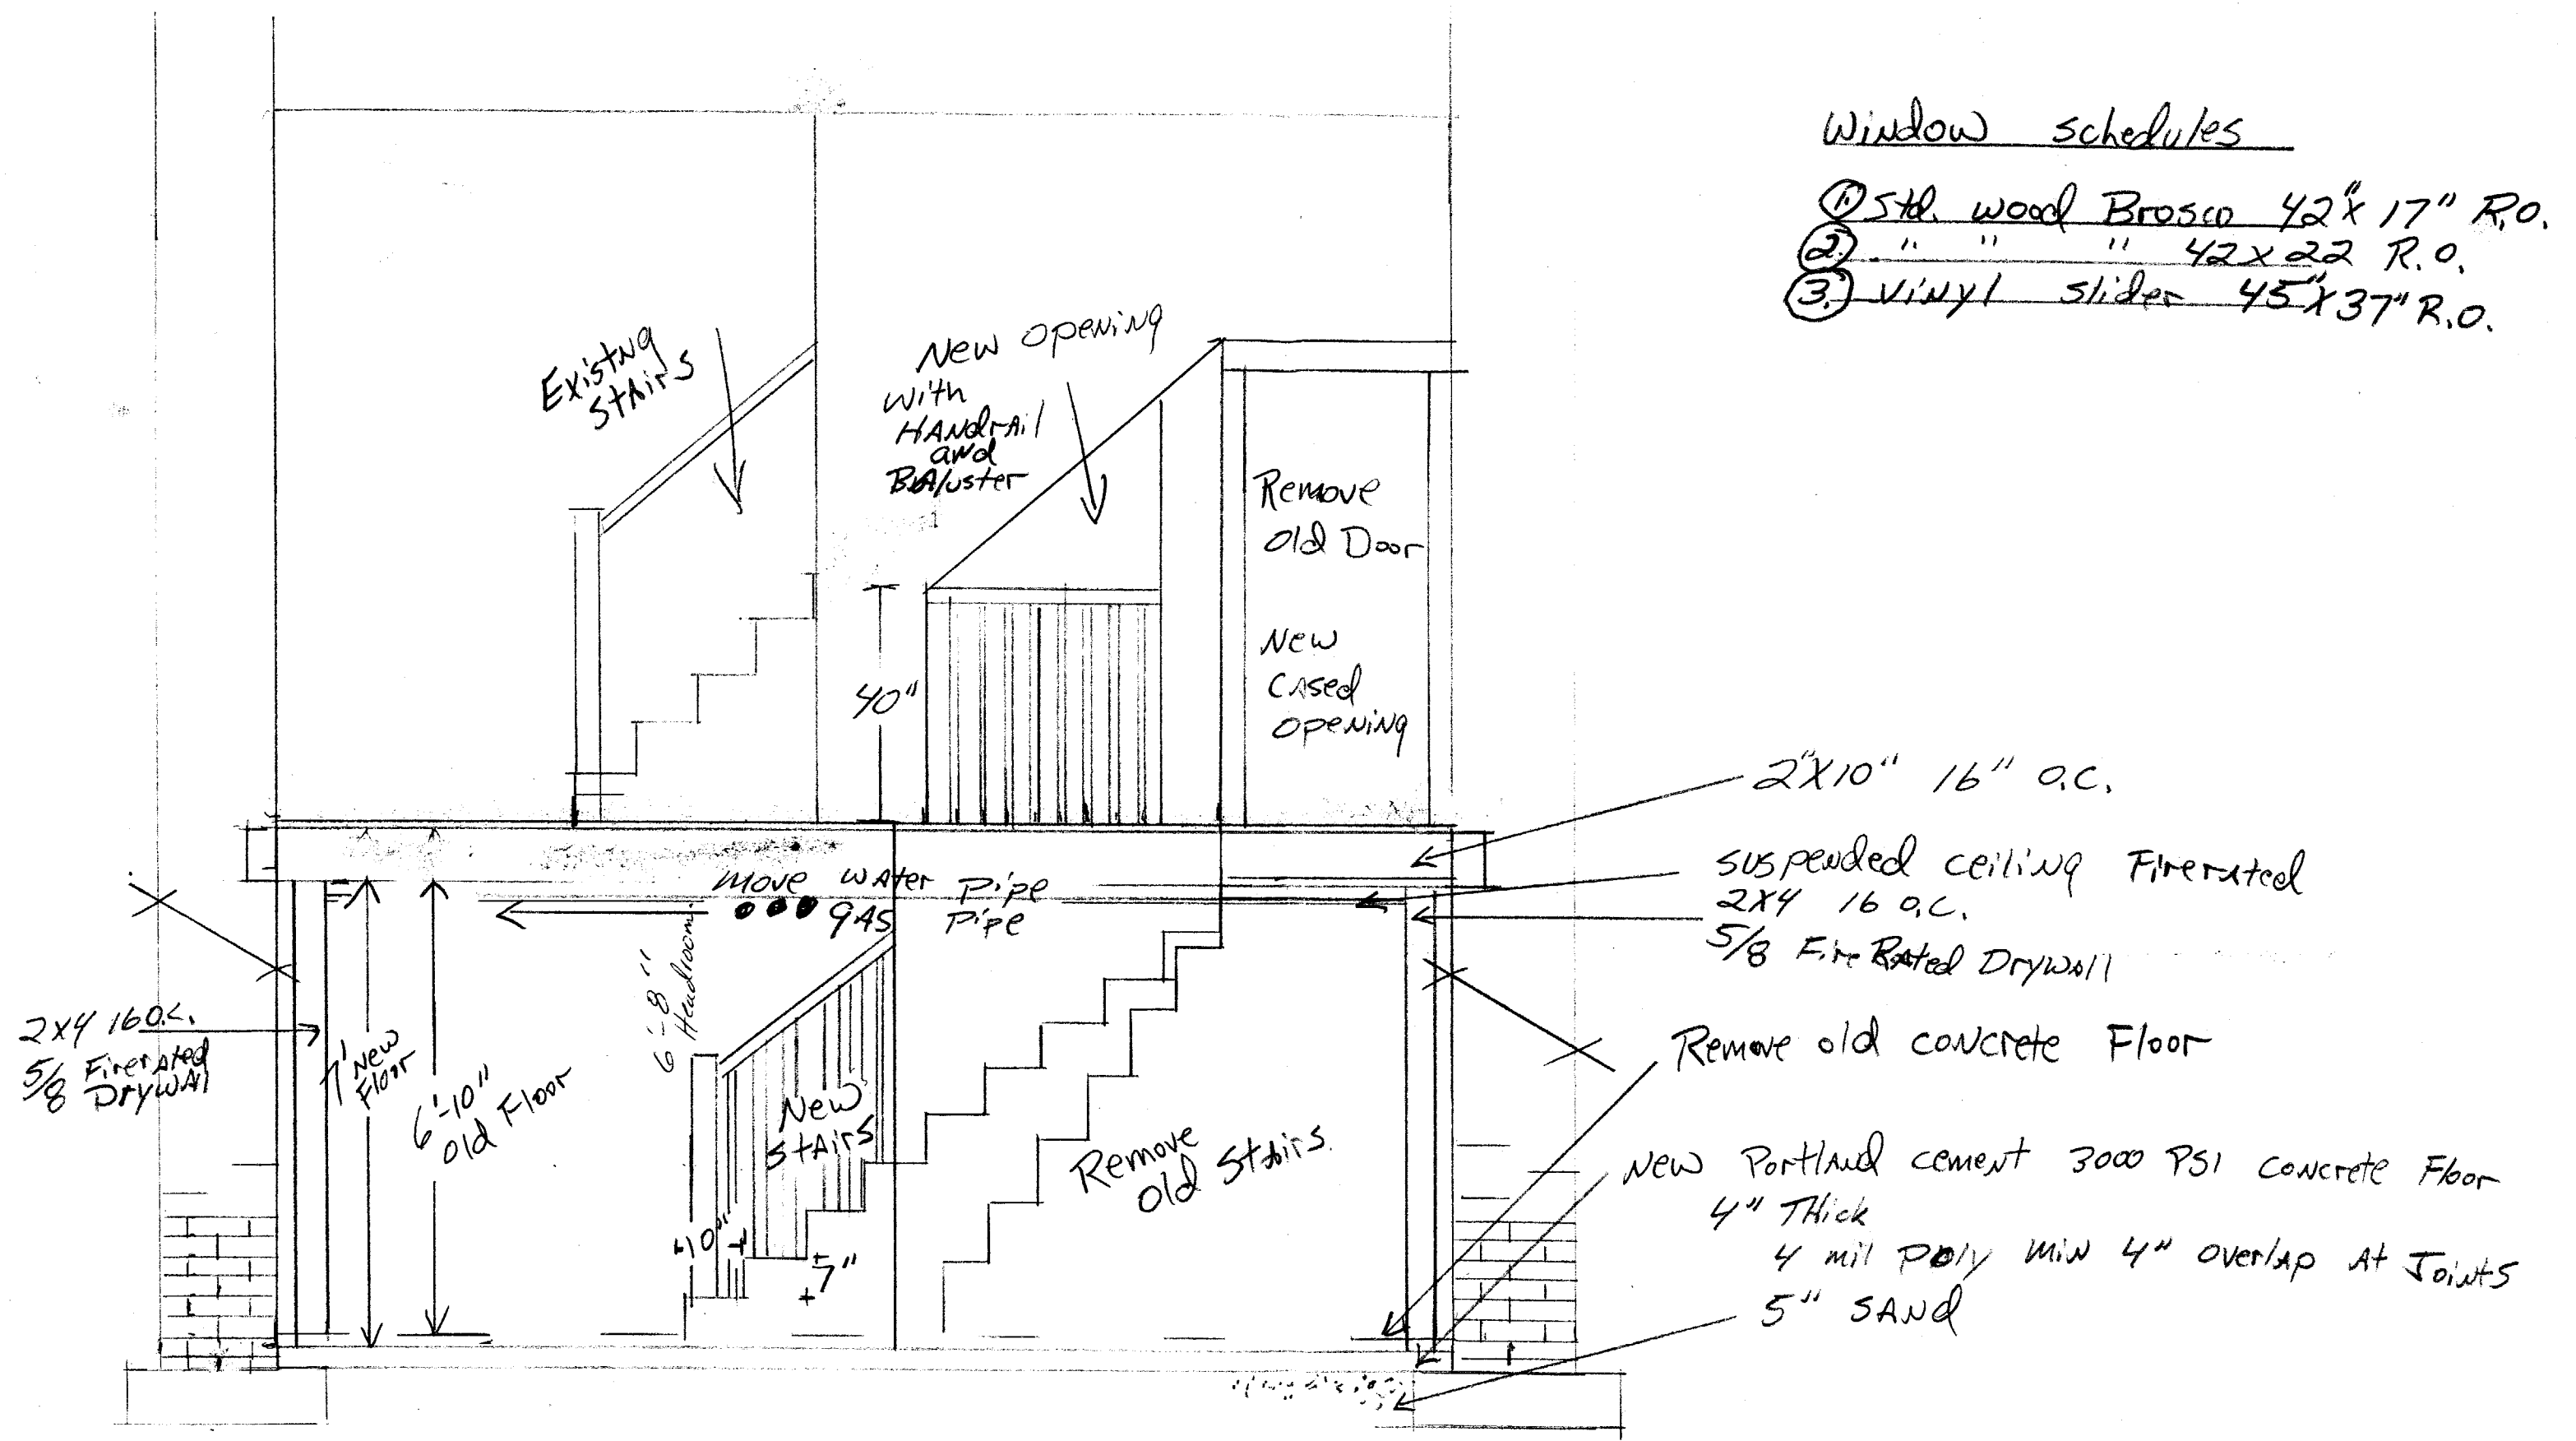 Window schedules
1. Std. wood Brosco 42" x 17" R.O.
2. " " " 42 x 22 R.O.
3. Vinyl slider 45" x 37" R.O.
Existng
Stairs
New opening
with
Handrail
and
Baluster
Remove
old Door
New
cased
opening
40"
2"x10" 16" O.C.
suspended ceiling Firerated
2x4 16 O.C.
5/8 Fire Rated Drywall
move water pipe
gas pipe
6'-8"
Headroom
2x4 16 O.C.
5/8 Firerated
Drywall
7' New
Floor
6'-10"
old Floor
New
Stairs
Remove
old Stairs.
10"
7"
Remove old concrete Floor
New Portland cement 3000 PSI concrete Floor
4" Thick
4 mil poly min 4" overlap at Joints
5" SAND